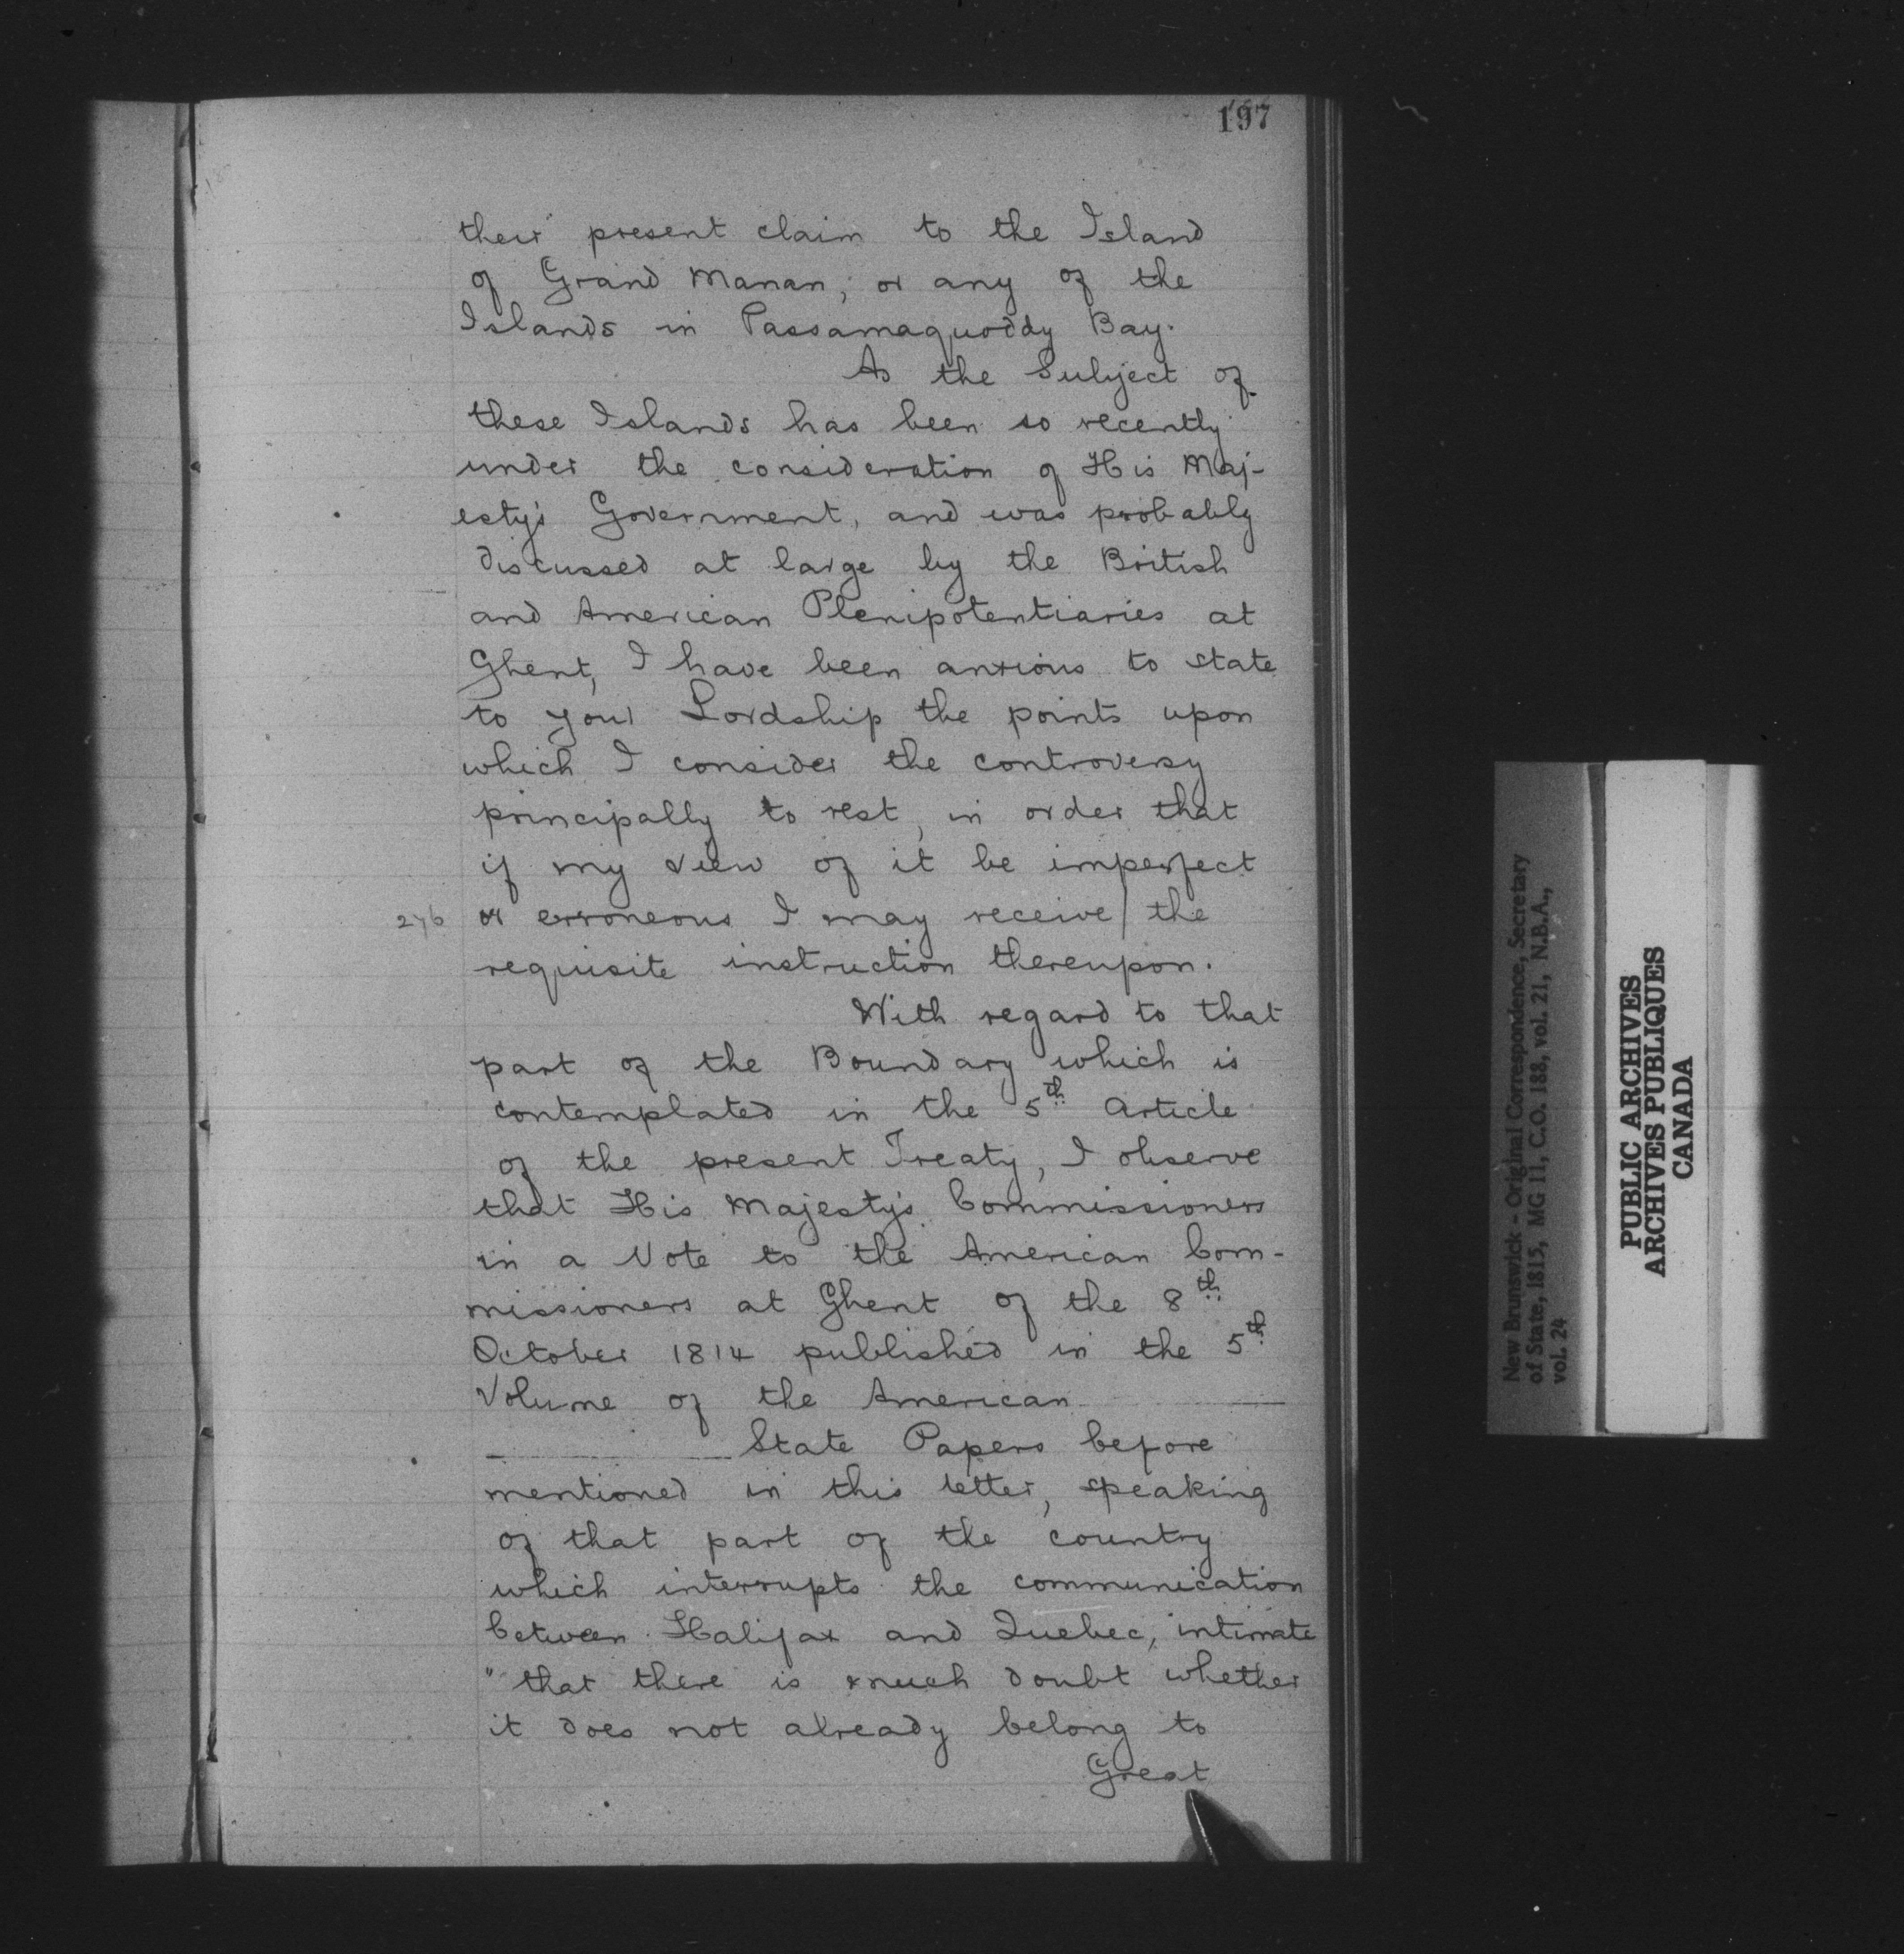 197
their present claim to the Island
of Grand Manan; or any of the
Islands in Passamaquoddy Bay.
As the Subject of
these Islands has been so recently
under the consideration of His Maj-
esty's Government, and was probably
discussed at large by the British
and American Plenipotentiaries at
Ghent, I have been anxious to state
to your Lordship the points upon
which I consider the controversy
principally to rest, in order that
if my view of it be imperfect
276 or erroneous I may receive / the
requisite instruction thereupon.
With regard to that
part of the Boundary which is
contemplated in the 5th Article
of the present Treaty, I observe
that His Majesty's Commissioners
in a Note to the American Com-
missioners at Ghent of the 8th
October 1814 published in the 5th
Volume of the American
State Papers before
mentioned in this letter, speaking
of that part of the country
which interrupts the communication
between Halifax and Quebec, intimate
"that there is much doubt whether
it does not already belong to
Great
New Brunswick - Original Correspondence, Secretary
of State, 1815, MG 11, C.O. 188, vol. 21, N.B.A.,
vol. 24
PUBLIC ARCHIVES
ARCHIVES PUBLIQUES
CANADA